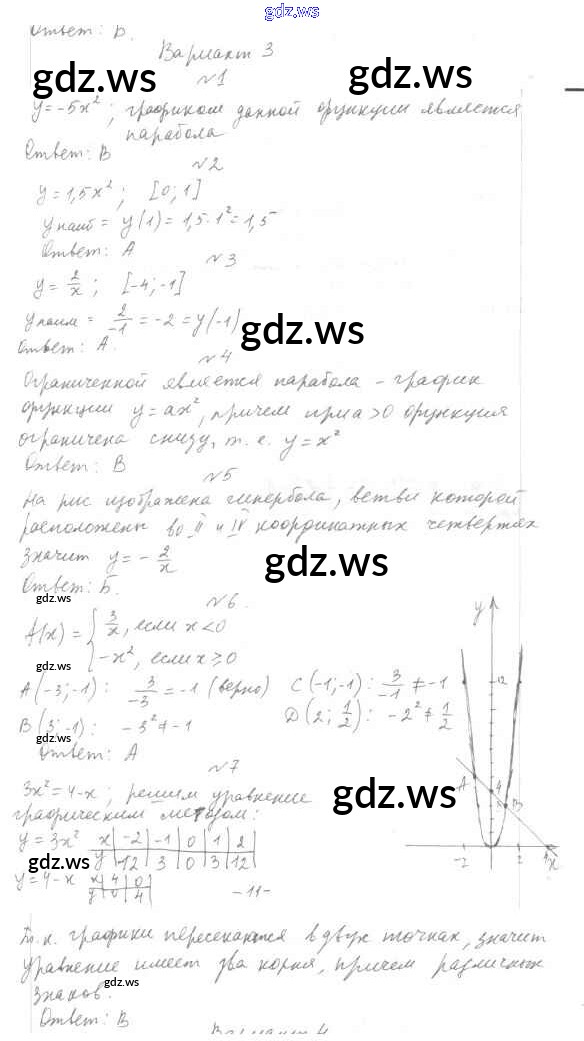 gdz.ws
Ответ: Б.
Вариант 3
gdz.ws gdz.ws
№1
y = -5x²; графиком данной функции является
парабола
Ответ: В
№2
y = 1,5x²; [0; 1]
yнаиб = y(1) = 1,5·1² = 1,5
Ответ: А
№3
y = 2/x; [-4; -1]
yнаим = 2/-1 = -2 = y(-1)
gdz.ws
Ответ: А.
№4
Ограниченной является парабола – график
функции y = ax², причем при a > 0 функция
ограничена снизу, т.е. y = x²
Ответ: В
№5
На рис изображена гипербола, ветви которой
расположены во II и IV координатных четвертях
значит y = - 2/x
gdz.ws
Ответ: Б.
gdz.ws
№6.
f(x) = { 3/x, если x < 0
-x², если x ≥ 0
gdz.ws
A(-3; -1): 3/-3 = -1 (верно) C(-1; -1): 3/-1 ≠ -1
B(3; -1): -3² ≠ -1 D(2; 1/2): -2² ≠ 1/2
gdz.ws
Ответ: А
№7
3x² = 4-x; решим уравнение
графическим методом:
gdz.ws
y = 3x² x | -2 | -1 | 0 | 1 | 2
y | 12 | 3 | 0 | 3 | 12
gdz.ws
y = 4-x x | 4 | 0
y | 0 | 4
-11-
y
12
A
4
B
-2 2 4 x
Т.к. графики пересекаются в двух точках, значит
уравнение имеет два корня, причем различных
знаков.
gdz.ws
Ответ: В
Вариант 4